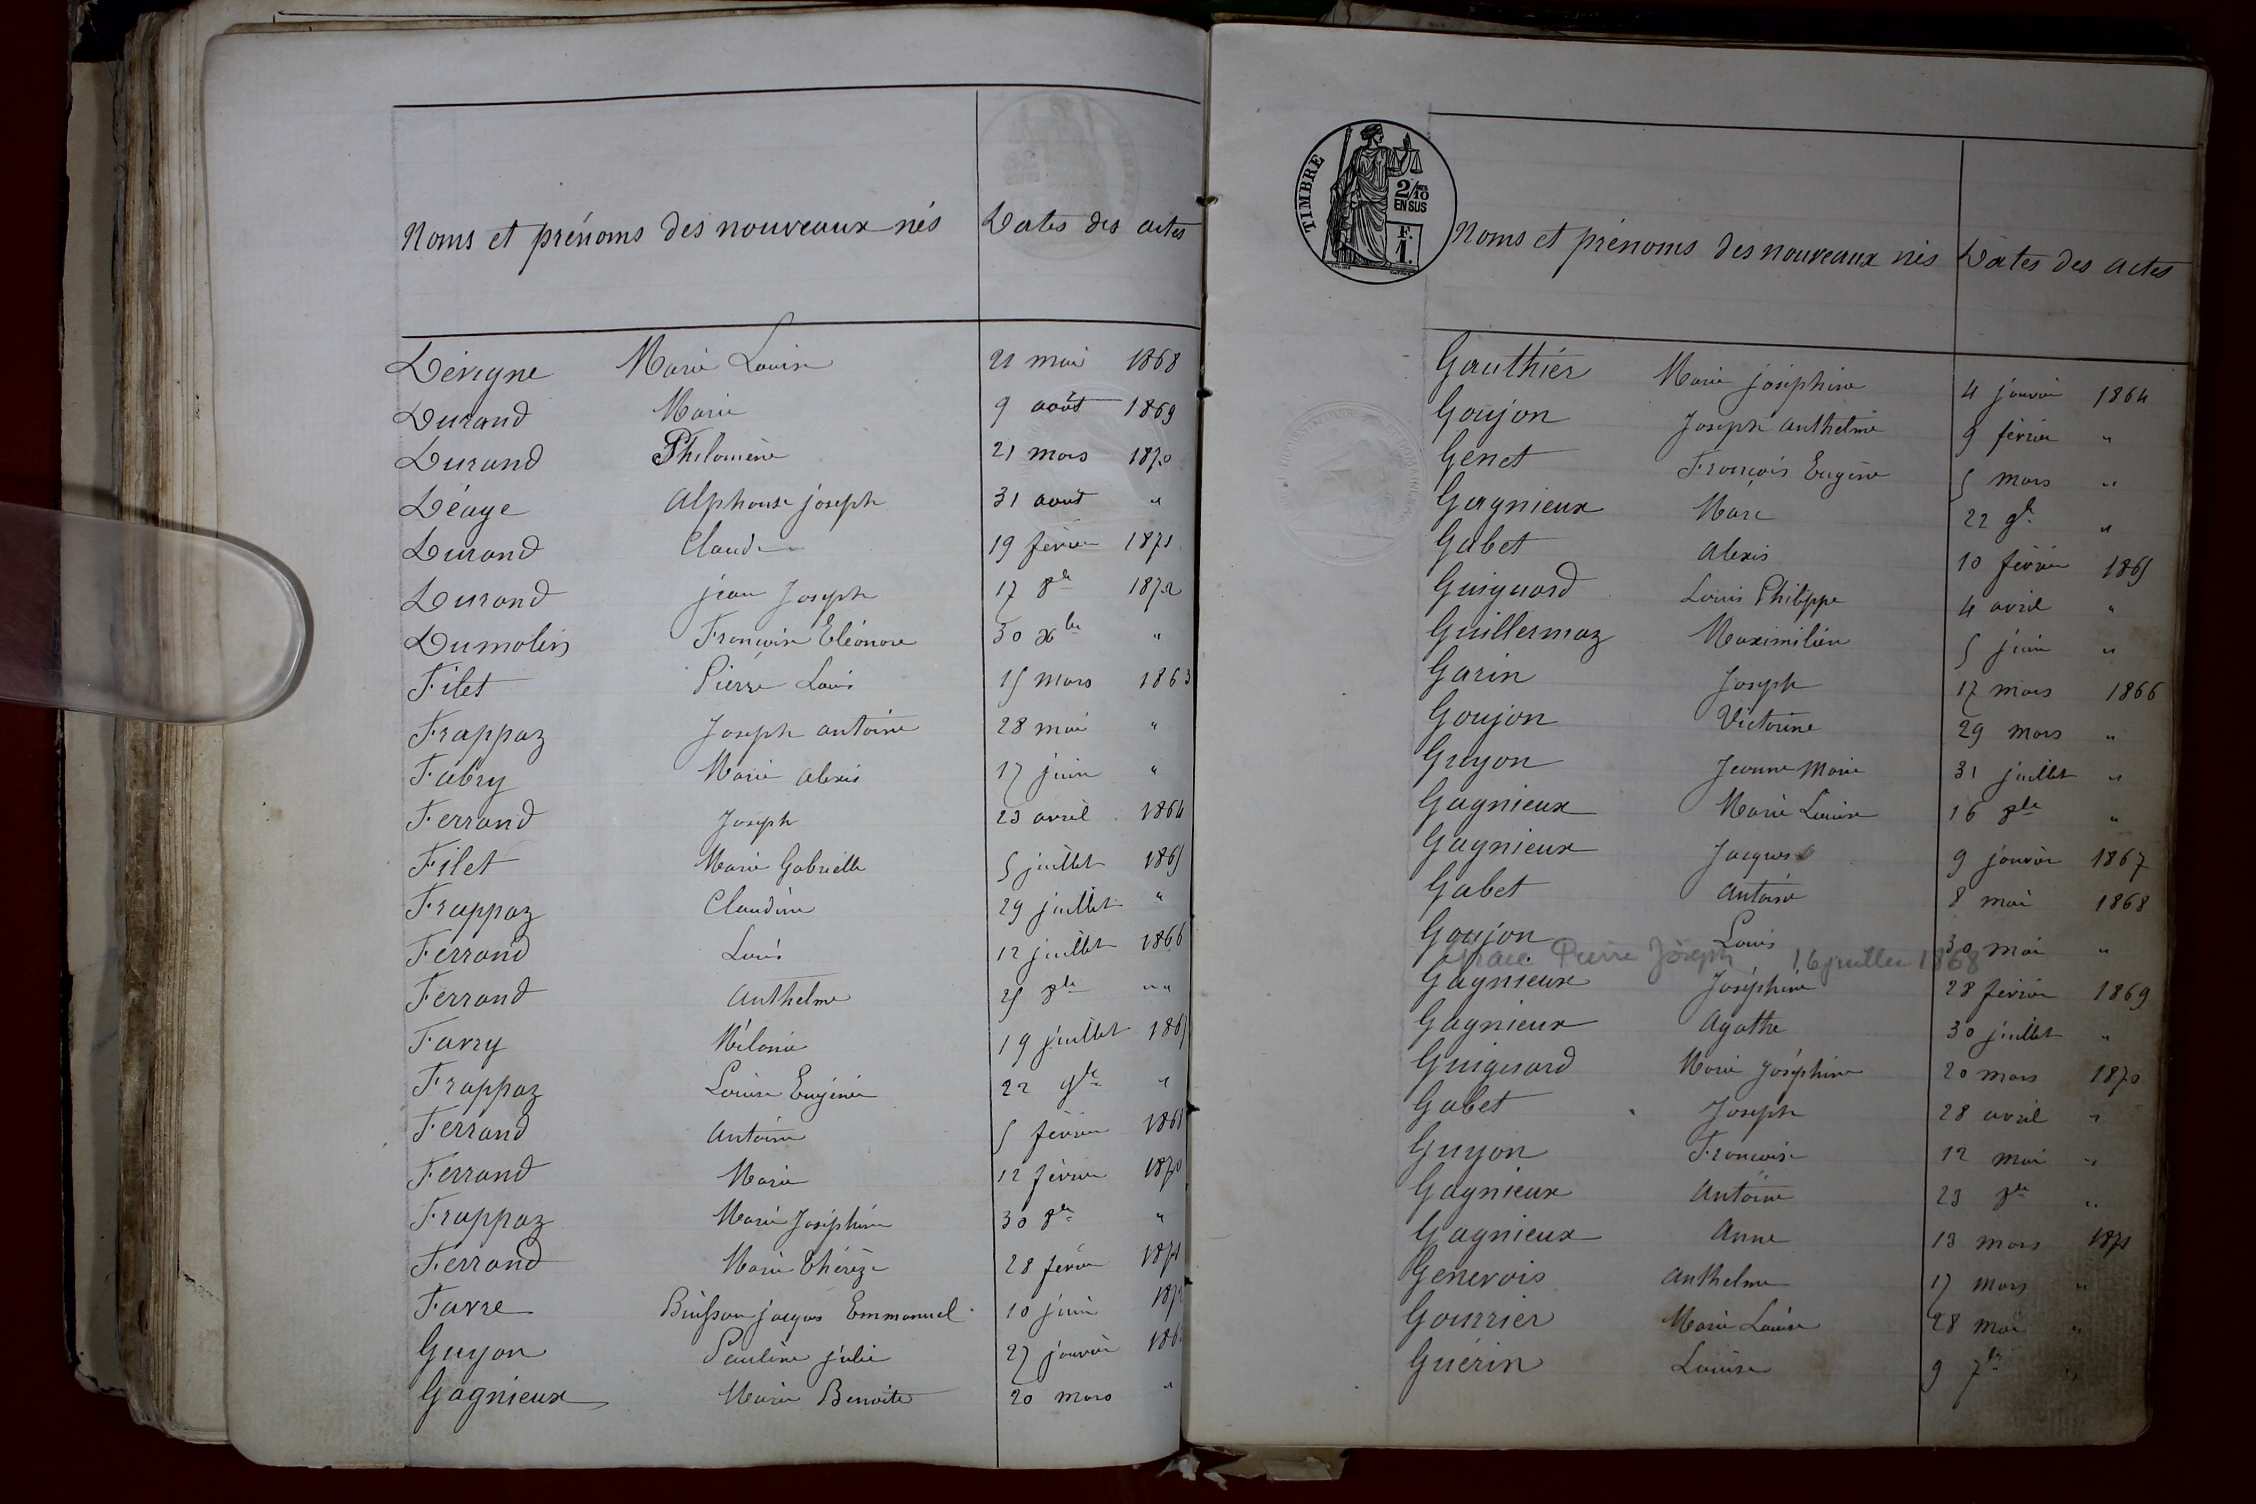 Noms et prénoms des nouveaux nés Dates des actes
Dévigne Marie Louise 21 mai 1868
Durand Marie 9 août 1869
Durand Philomène 21 mars 1870
Déage Alphonse joseph 31 août "
Durand Claude 19 février 1871
Durand jean Joseph 17 8bre 1872
Dumolin Francoise Eléonore 30 Xbre "
Filet Pierre Louis 15 mars 1863
Frappaz Joseph antoine 28 mai "
Fabry Marie alexis 17 juin "
Ferrand Joseph 23 avril 1864
Filet Marie Gabrielle 5 juillet 1865
Frappaz Claudine 29 juillet "
Ferrand Louis 12 juillet 1866
Ferrand Anthelme 25 8bre ""
Favry Mélanie 19 juillet
Frappaz Louise Eugénie 22 9bre "
Ferrand Antoine 5 février
Ferrand Marie 12 février 1870
Frappaz Marie Joséphine 30 8bre "
Ferrand Marie Thérèze 28 février 1871
Favre Buisson jacques Emmanuel 10 juin
Guyon Pauline julie 27 janvier
Gagnieux Marie Benoite 20 mars "
TIMBRE
2/10
EN SUS
F.
1.
Noms et prénoms des nouveaux nés Dates des actes
Gauthier Marie joséphine 4 janvier 1864
Goujon Joseph anthelme 9 février "
Genet François Eugène 5 mars "
Gagnieux Marc 22 9bre "
Gabet Alexis 10 février 1865
Guignard Louis Philippe 4 avril "
Guillermaz Maximilien 5 juin "
Garin Joseph 17 mars 1866
Goujon Victorine 29 mars "
Guyon Jeanne Marie 31 juillet "
Gagnieux Marie Louise 16 8bre "
Gagnieux Jacques 9 janvier 1867
Gabet Antoine 8 mai 1868
Goujon Louis 30 mai "
Pierre Joseph 16 juillet 1868
Gagnieux Joséphine 28 février 1869
Gagnieux Agathe 30 juillet "
Guignard Marie Joséphine 20 mars 1870
Gabet Joseph 28 avril "
Guyon Francoise 12 mai "
Gagnieux Antoine 23 8bre "
Gagnieux Anne 13 mars 1871
Genevois Anthelme 17 mars "
Gourrier Marie Louise 28 mai "
Guérin Louise 9 7bre "